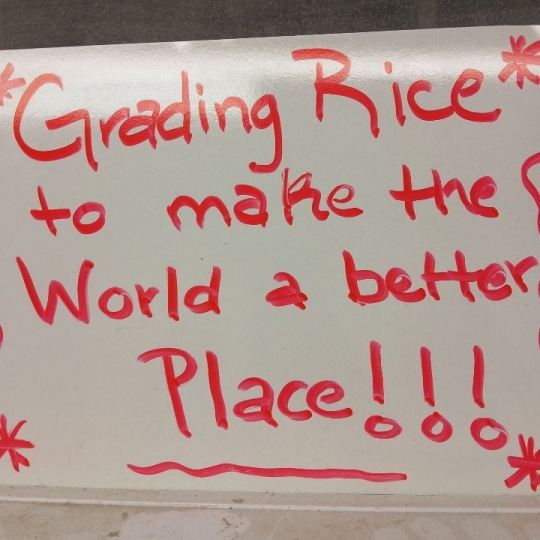 *Grading Rice*
to make the
World a better
Place!!!